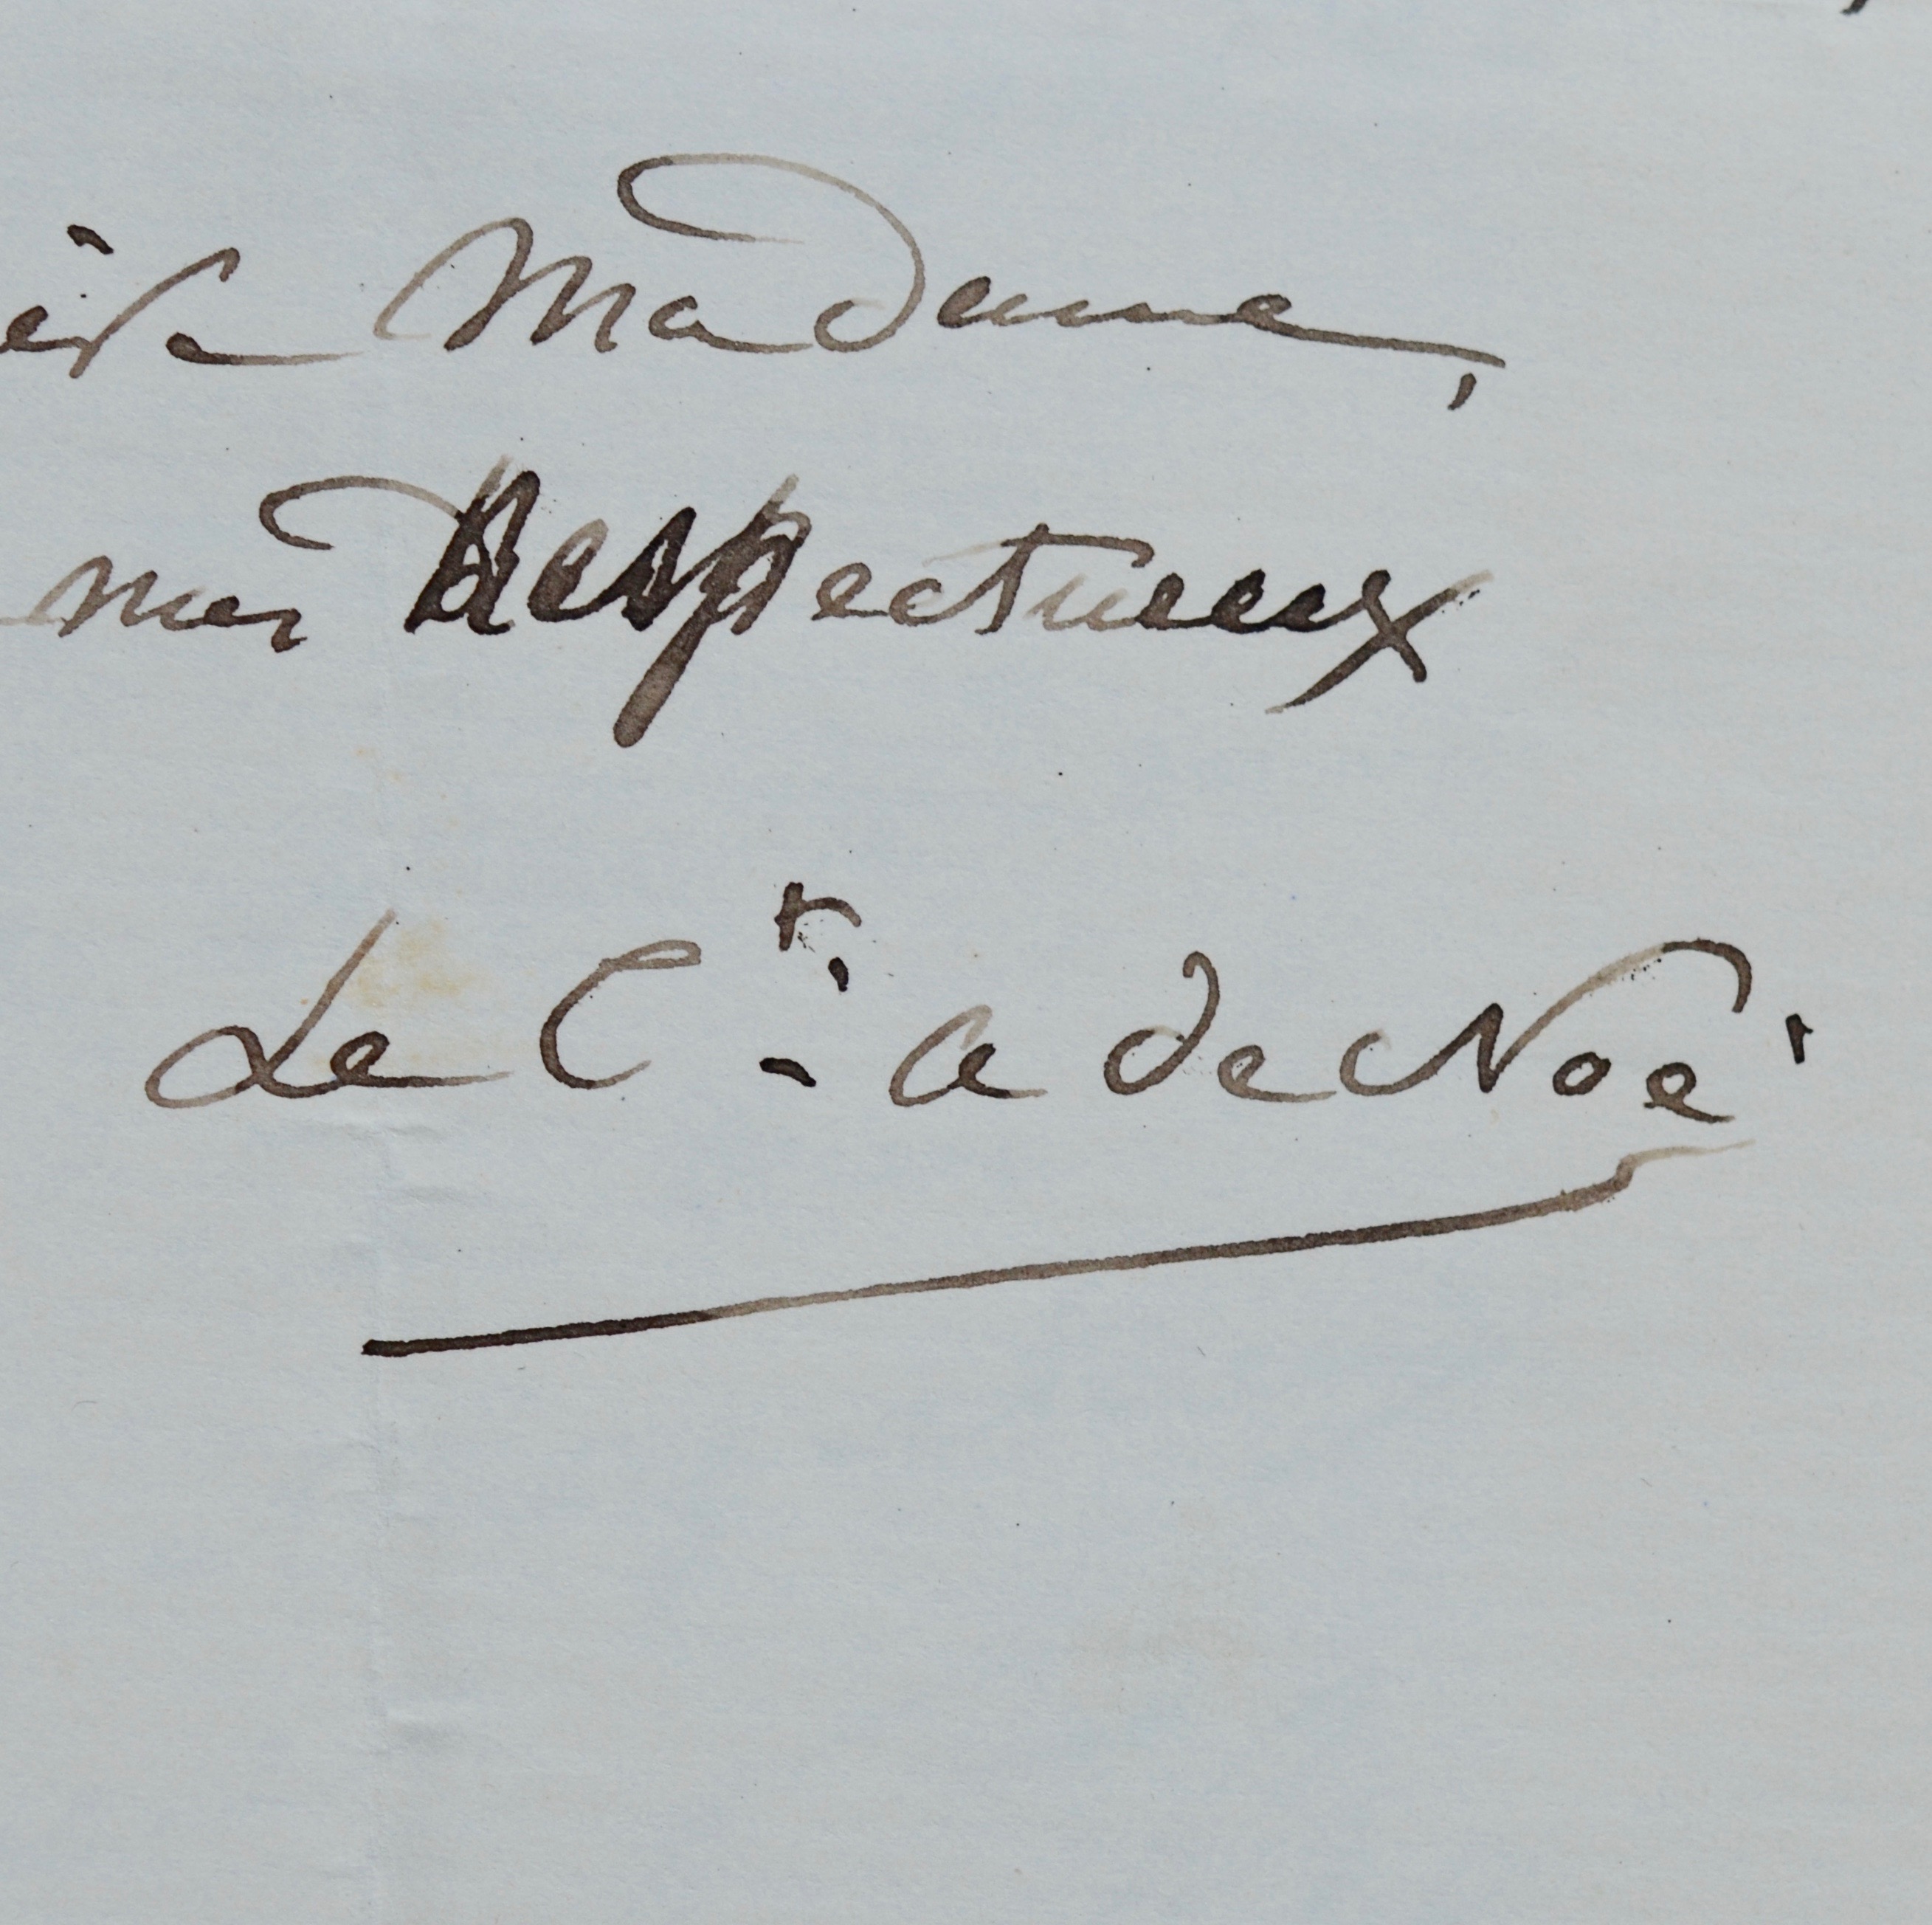 Madame,
mes Respectueux
Le Ct. A de Noé